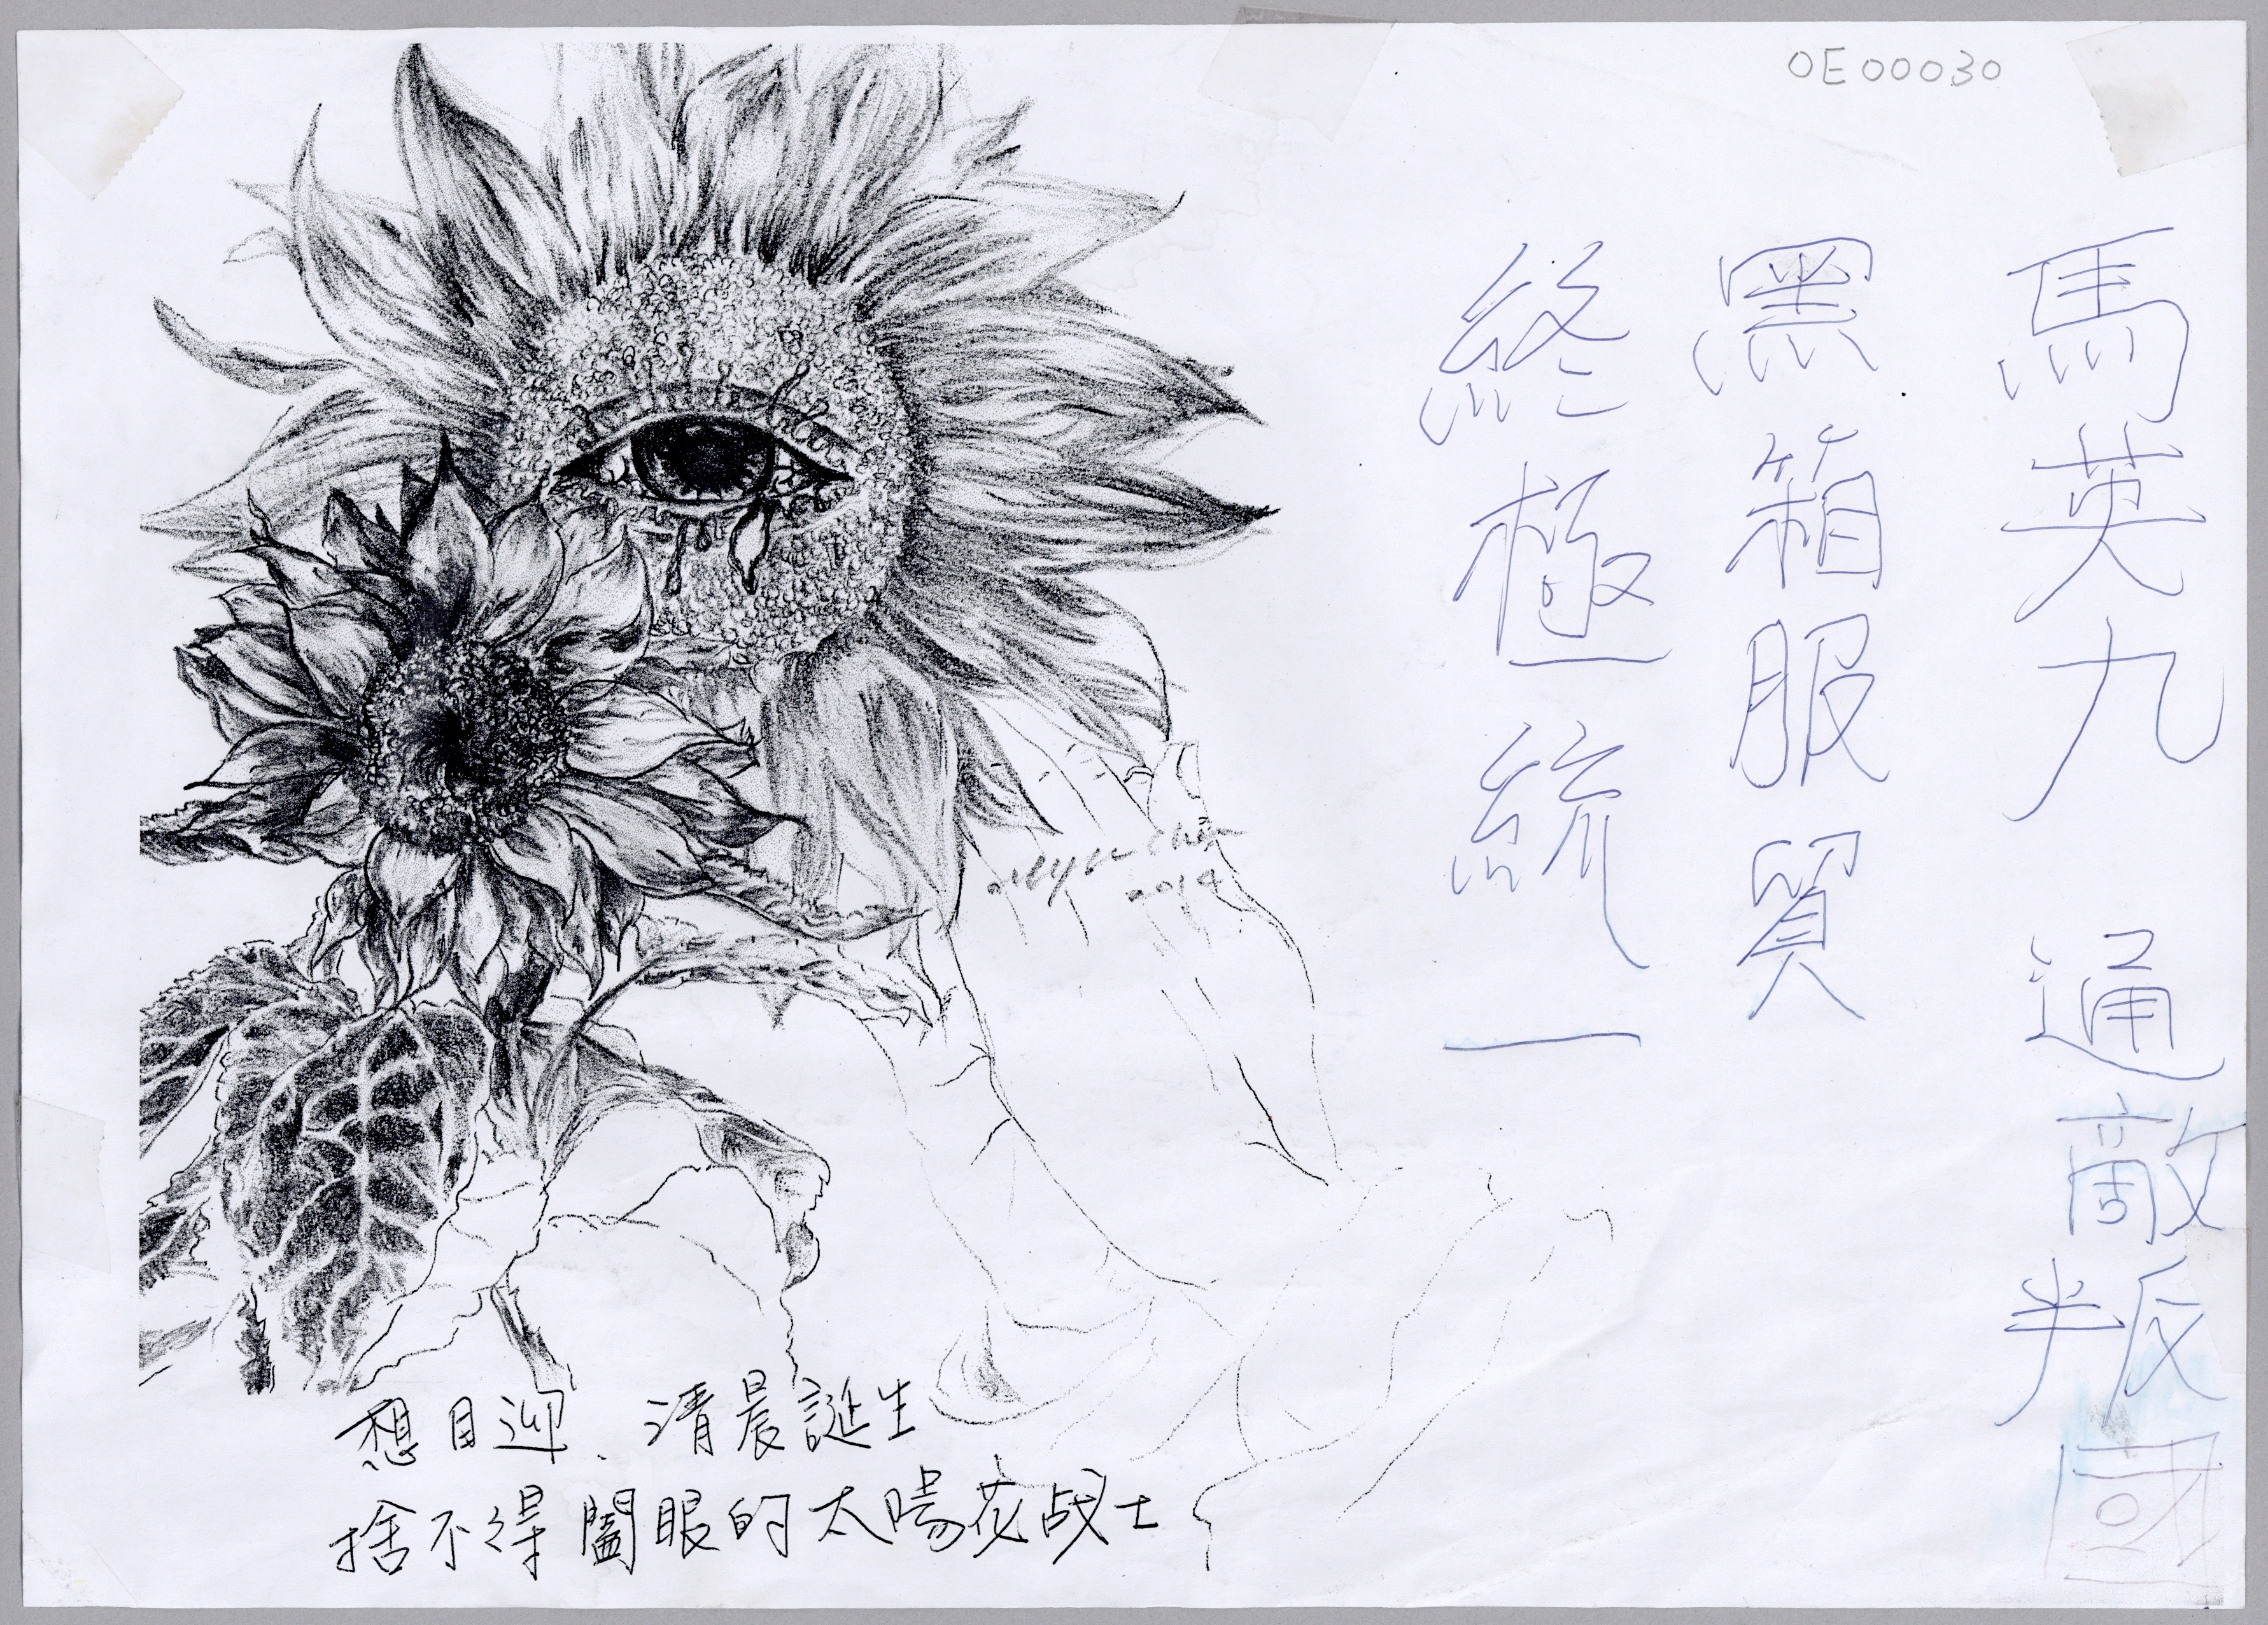 OE00030
馬英九 通敵叛國
黑箱服貿
終極統一
2014
想目迎、清晨誕生
捨不得闔眼的太陽花战士